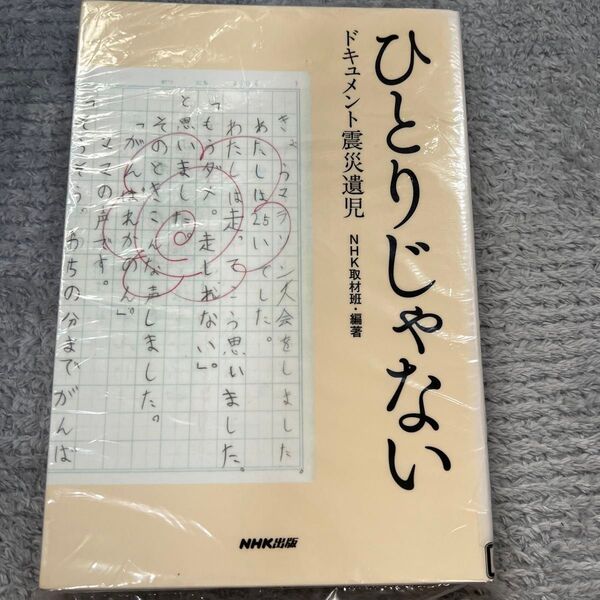 ひとりじゃない
ドキュメント震災遺児
NHK取材班・編著
きょうマラソン大会をしました。
わたしは25いでした。
わたしは走ってこう思いました。
「もうダメ。走れない」。
と思いました。
そのときこんな声しました。
「がんばれかのん」。
ママの声です。
「そうそう、わちの分までがんば
NHK出版